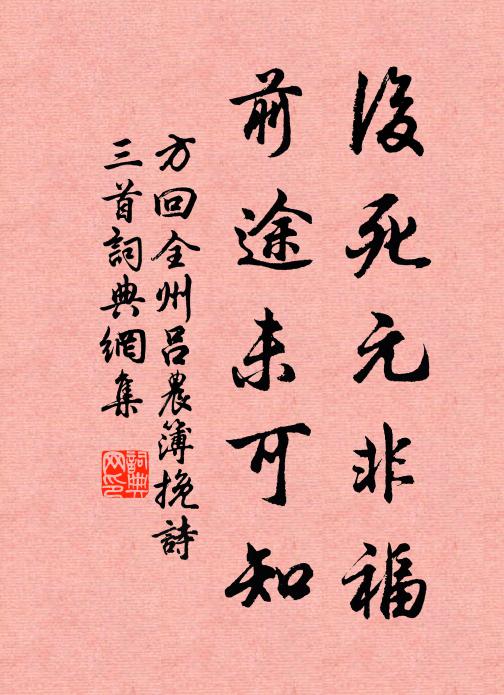 後死元非福
前途未可知
方回全州呂農簿挽詩
三首詞典網集
詞典
网印